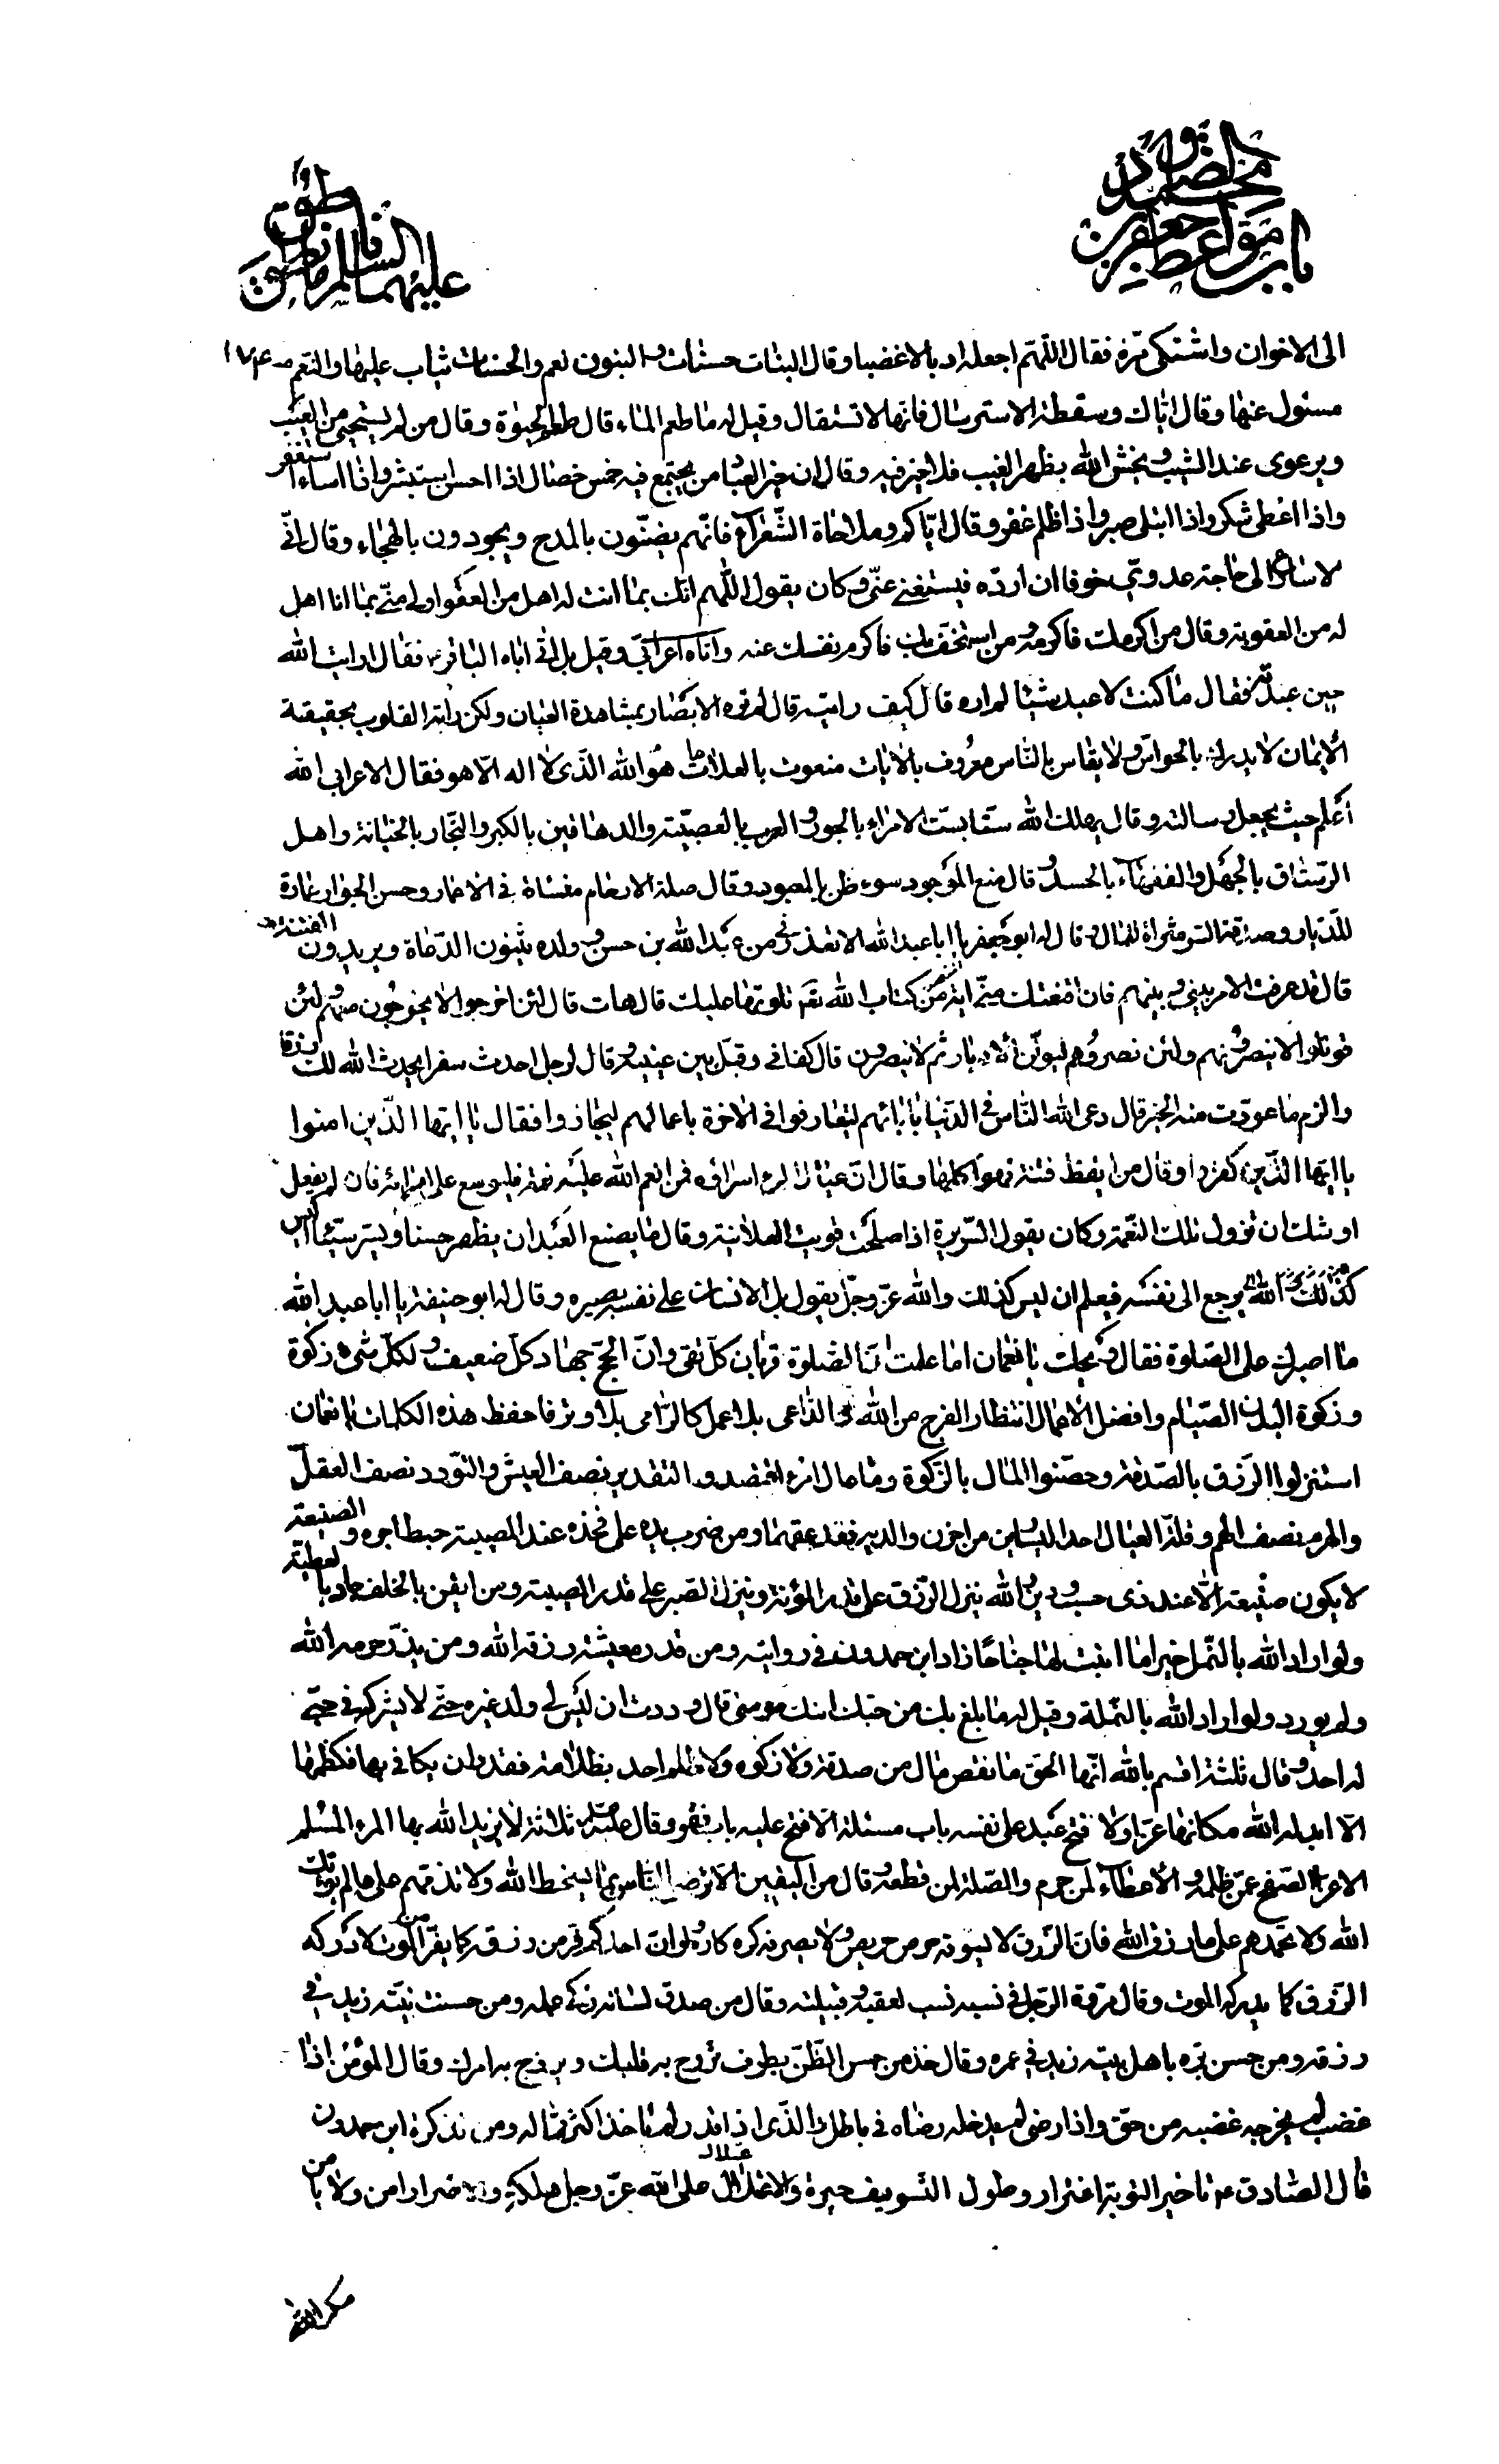 باب مواعظ جعفر بن محمد الصادق
عليهما السلام
الى الاخوان واشتكى مرة فقال اللهم اجعله ادبا لا غضبا وقال البنات حسنات والبنون نعم والحسنات يثاب عليها والنعم
مسئول عنها وقال اياك وسقطة الاسترسال فانها لا تستقال وقيل له ما طعم الماء قال طعم الحيوة وقال من لم يستحيى من العيب
ويرعوى عند الشيب ويخش الله بظهر الغيب فلا خير فيه وقال ان خير العباد من يجتمع فيه خمس خصال اذا احسن استبشر واذا اساء استغفر
واذا اعطى شكر واذا ابتلى صبر واذا ظلم غفر وقال اياكم وملاحاة الشعراء فانهم يضنون بالمدح ويجودون بالهجاء وقال انى
لاسارع الى حاجة عدوى خوفا ان ارده فيستغنى عنى وكان يقول اللهم انك بما انت له اهل من العفو اولى منى بما انا اهل
له من العقوبة وقال من اكرمك فاكرمه ومن استخف بك فاكرم نفسك عنه واتاه اعرابى وقيل بل اتى اباه الباقر فقال ارايت الله
حين عبدته فقال ما كنت لاعبد شيئا لم اره قال كيف رايته قال لم تره الابصار بمشاهدة العيان ولكن راته القلوب بحقيقة
الايمان لا يدرك بالحواس ولا يقاس بالناس معروف بالايات منعوت بالعلامات هو الله الذى لا اله الا هو فقال الاعرابى الله
اعلم حيث يجعل رسالته وقال يهلك الله ستا بست الامراء بالجور والعرب بالعصبية والدهاقين بالكبر والتجار بالخيانة واهل
الرستاق بالجهل والفقهاء بالحسد وقال منع الموجود سوء ظن بالمعبود وقال صلة الارحام منساة فى الاعمار وحسن الجوار عمارة
للديار وصدقة السر مثراة للمال وقال له ابو جعفر يا ابا عبد الله الا تعذرنى من عبد الله بن حسن وولده يبثون الدعاة ويريدون الفتنة
قال قد عرفت الامر بينى وبينهم فان اقنعتك منى اية من كتاب الله تعم تلوتها عليك قال هات قال لئن اخرجوا لا يخرجون معهم ولئن
قوتلوا لا ينصرونهم ولئن نصروهم ليولن الادبار ثم لا ينصرون قال كفانى وقبل بين عينيه وقال لرجل احدث سفرا يحدث الله لك رزقا
والزم ما عودت منه الخير قال دعى الله الناس فى الدنيا بابائهم ليتعارفوا فى الاخرة باعمالهم ليجازوا فقال يا ايها الذين امنوا
يا ايها الذين كفروا وقال من ايقظ فتنة فهو اكلها وقال ان عيال المرء اسراؤه فمن انعم الله عليه نعمة فليوسع على اسرائه فان لم يفعل
اوشك ان تزول تلك النعمة وكان يقول السريرة اذا صلحت قويت العلانية وقال ما يصنع العبد ان يظهر حسنا ويسر سيئا اليس
يرجع الى نفسه فيعلم ان ليس كذلك والله عز وجل يقول بل الانسان على نفسه بصيرة وقال له ابو حنيفة يا ابا عبد الله
ما اصبرك على الصلوة فقال ويحك يا نعمان اما علمت ان الصلوة قربان كل تقى وان الحج جهاد كل ضعيف ولكل شىء زكوة
وزكوة البدن الصيام وافضل الاعمال انتظار الفرج من الله والداعى بلا عمل كالرامى بلا وتر فاحفظ هذه الكلمات يا نعمان
استنزلوا الرزق بالصدقة وحصنوا المال بالزكوة وما عال امرء اقتصد والتقدير نصف العيش والتودد نصف العقل
والهرم نصف الهم وقلة العيال احد اليسارين من احزن والديه فقد عقهما ومن ضرب بيده على فخذه عند المصيبة حبط اجره والصنيعة
لا يكون صنيعة الا عند ذى حسب ودين والله ينزل الرزق على قدر المؤنة وينزل الصبر على قدر المصيبة ومن ايقن بالخلف جاد بالعطية
ولو اراد الله بالنمل خيرا ما انبت لها جناحا زاد ابن حمدون فى روايته ومن قدر معيشته رزقه الله ومن بذر حرمه الله
ولم يورد ولو اراد الله بالنملة وقيل له ما بلغ بك من حبك ابنك موسى قال وددت ان ليس لى ولد غيره حتى لا يشركه فى حبى
له احد وقال ثلثة اقسم بالله انها الحق ما نقص مال من صدقة ولا زكوة ولا ظلم احد بظلامة فقدر ان يكافى بها فكظمها
الا ابدله الله مكانها عزا ولا فتح عبد على نفسه باب مسئلة الا فتح عليه باب فقر وقال ثلاثة لا يزيد الله بها المرء المسلم
الا عزا الصفح عمن ظلمه والاعطاء لمن حرمه والصلة لمن قطعه وقال من اليقين الا ترضى الناس بما يسخط الله ولا تذمهم على ما لم يؤتك
الله ولا تحمدهم على ما رزق الله فان الرزق لا يسوقه حرص حريص ولا يصرفه كره كاره ولو ان احدكم فر من رزقه كما يفر من الموت لادركه
الرزق كما يدركه الموت وقال مروة الرجل فى نفسه نسب لعقبه وقبيلته وقال من صدق لسانه زكى عمله ومن حسنت نيته زيد فى
رزقه ومن حسن بره باهل بيته زيد فى عمره وقال خذ من حسن الظن بطرف تروح به قلبك ويروج به امرك وقال المؤمن اذا
غضب لم يخرجه غضبه من حق واذا رضى لم يدخله رضاه فى باطل والذى اذا قدر لم ياخذ اكثر مما له ومن تذكرة ابن حمدون
قال الصادق ع تاخير التوبة اغترار وطول التسويف حيرة والاعتلال على الله عز وجل هلكة والاصرار امن ولا يامن
مكر الله